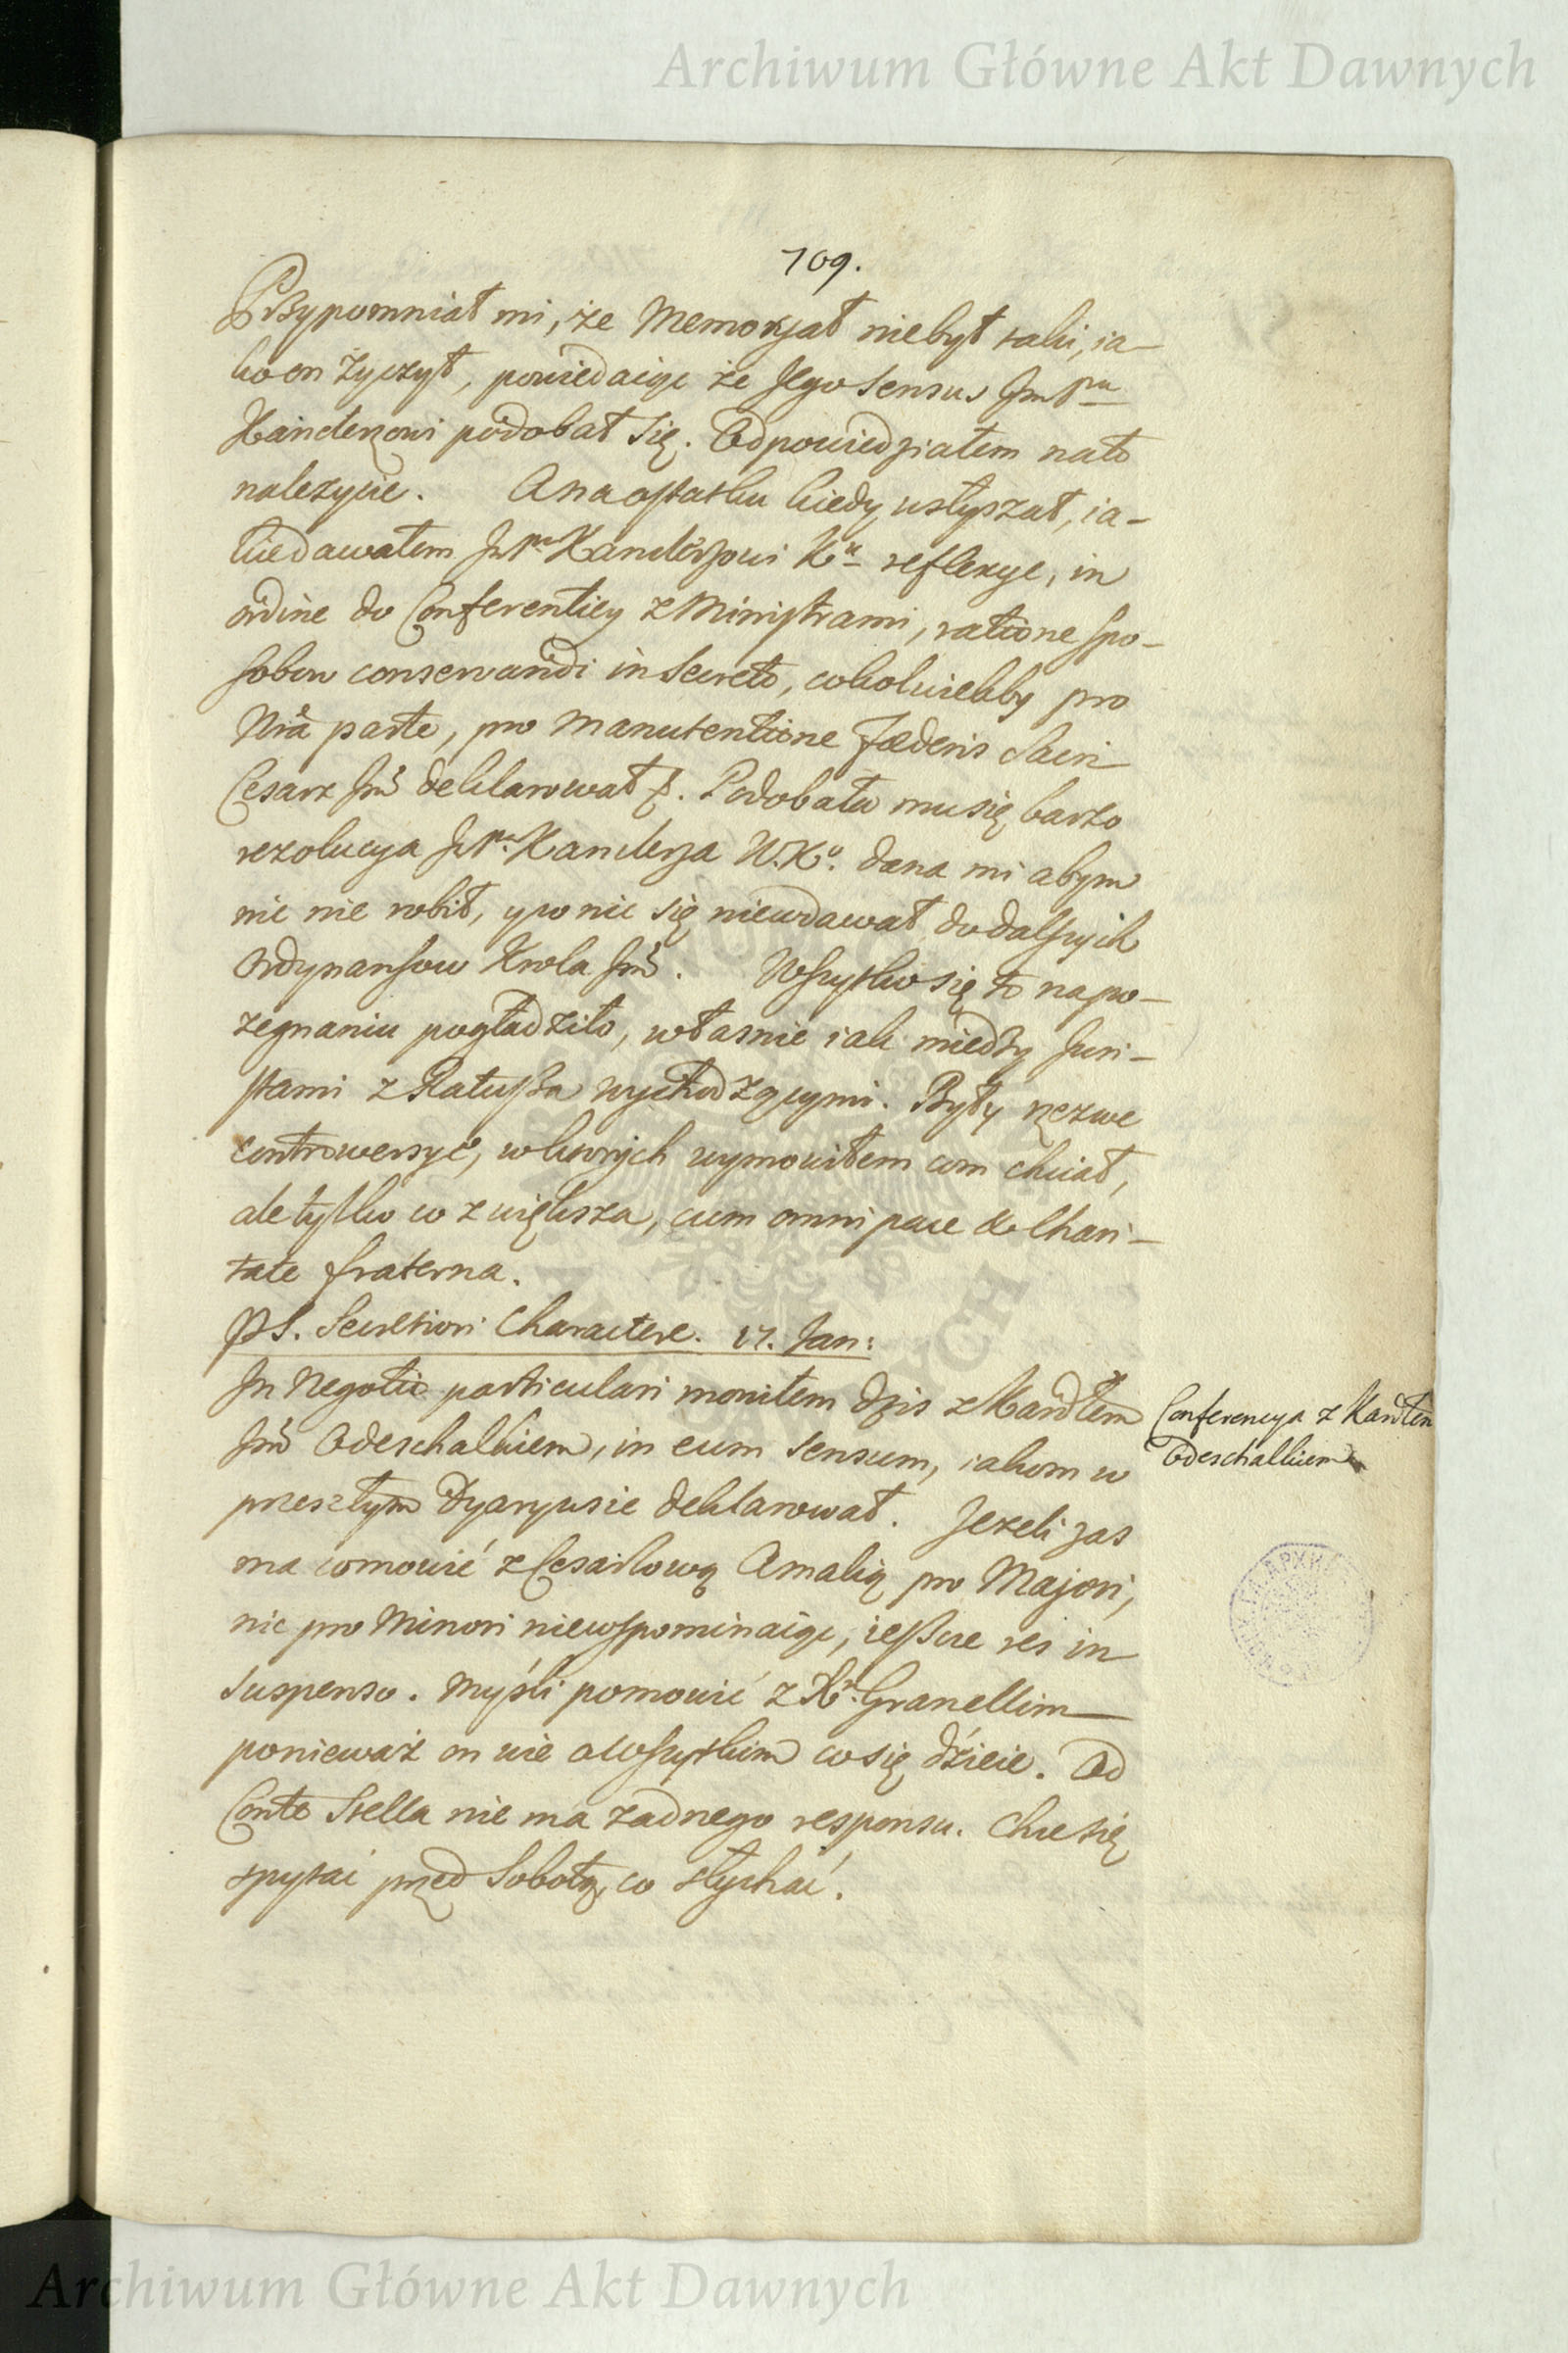 Archiwum Główne Akt Dawnych
709.
Przypomniał mi, że Memoryał niebył taki, ia-
ko on życzył, powiedaiąc że Jego sensus Jm Pu
Kanclerzowi podobał się. Odpowiedziałem nato
należycie. Anaostatku kiedy usłyszał, ia-
kiedawałem JP. Kanclerzowi Ku reflexye, in
ordine do Conferentiey z Ministrami, ratione spo-
sobow conservandi in Secreto, cokolwiekby pro
Nrã parte, pro manutentione Fæderis Sacri
Cesarz Jmć deklarował. Podobała musię barzo
rezolucya JP. Kanclerza W.Ko. dana mi abym
nic nie robił, y wonic się niewdawał do dalszych
Ordynansow Krola Jmć. Wszystko się to napo-
żegnaniu pogładziło, własnie iak między Juri-
stami z Ratusza wychodzącymi. Były rzezwe
controwersye, w ktorych wymowiłem com chciał,
ale tylko co z większa, cum omni pace & chari-
tate fraterna.
PS. Secretiori Charactere. 17. Jan:
In Negotio particulari mowiłem dzis z Kardłem
Jmć Odeschalkiem, in eum sensum, iakom w
przeszłym Dyaryusie deklarował. Jezeli zas
ma comowić z Cesarzową Amalią pro Majori,
nic pro Minori niewspominaiąc, ieszcze res in
suspenso. Myśli pomowić z X. Granellim
ponieważ on wie owszystkim co się dźieie. Od
Conte Stella nie ma żadnego responsu. Chce się
spytać przed Sobotą, co słychać.
Conferencya z Kardłem
Odeschalkiem
Archiwum Główne Akt Dawnych